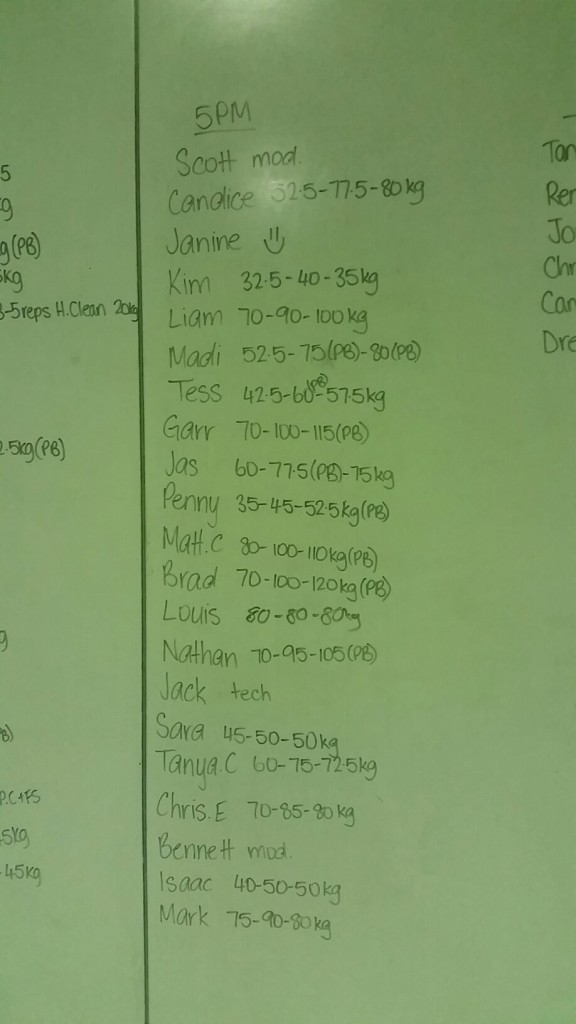 5PM
Scott mod.
Candice 52.5-77.5-80kg
Janine
Kim 32.5-40-35kg
Liam 70-90-100kg
Madi 52.5-75(PB)-80(PB)
Tess 42.5-60(PB)-57.5kg
Garr 70-100-115(PB)
Jas 60-77.5(PB)-75kg
Penny 35-45-52.5kg(PB)
Matt.C 80-100-110kg(PB)
Brad 70-100-120kg(PB)
Louis 80-80-80kg
Nathan 70-95-105(PB)
Jack tech
Sara 45-50-50kg
Tanya.C 60-75-72.5kg
Chris.E 70-85-80kg
Bennett mod.
Isaac 40-50-50kg
Mark 75-90-80kg
5
g
g(PB)
5kg
3-5reps H.Clean 20kg
2.5kg(PB)
g
B)
P.C+FS
5kg
-45kg
Tan
Ren
Jo
Chr
Can
Dre